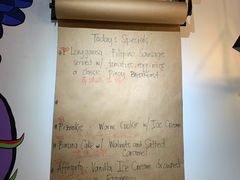 Today's Specials
Longganisa Filipino Sausage
served w/ tomatoes, egg, rice
a classic Pinoy Breakfast
Pizookie - Warm Cookie w/ Ice Cream
Banana Cake w/ Walnuts and Salted
Caramel
Affogato - Vanilla Ice Cream drowned
Espresso